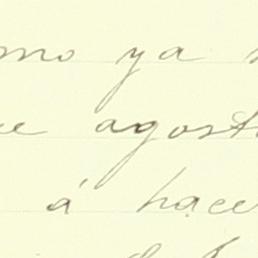 mo ya
agost
á hace